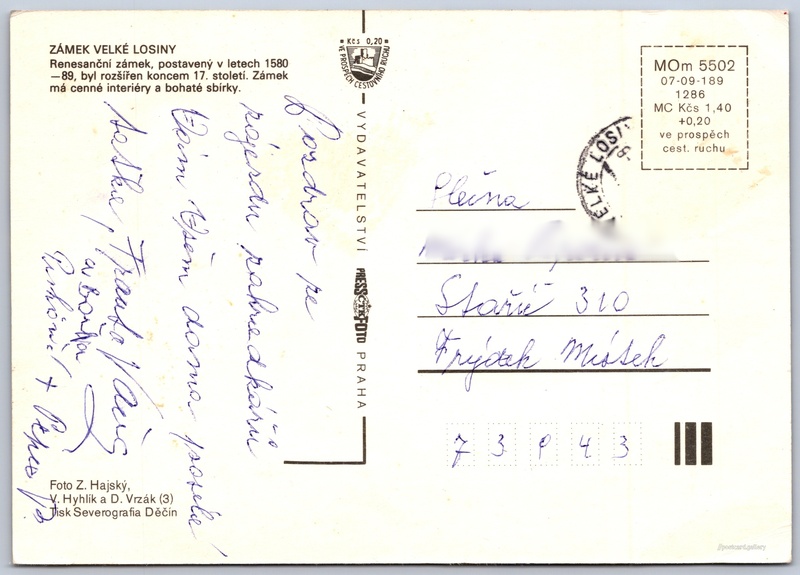 ZÁMEK VELKÉ LOSINY
Renesanční zámek, postavený v letech 1580
—89, byl rozšířen koncem 17. století. Zámek
má cenné interiéry a bohaté sbírky.
Kčs 0,20
VE PROSPĚCH CESTOVNÍHO RUCHU
MOm 5502
07-09-189
1286
MC Kčs 1,40
+0,20
ve prospěch
cest. ruchu
VELKÉ LOSIN
Pozdrav ze
zájezdu zahrádkářů
Vám všem doma posílá
taťka, Franta
a
VYDAVATELSTVÍ PRESSFOTO PRAHA
Slečna
Staříč 310
Frýdek Místek
73943
Foto Z. Hajský,
V. Hyhlík a D. Vrzák (3)
Tisk Severografia Děčín